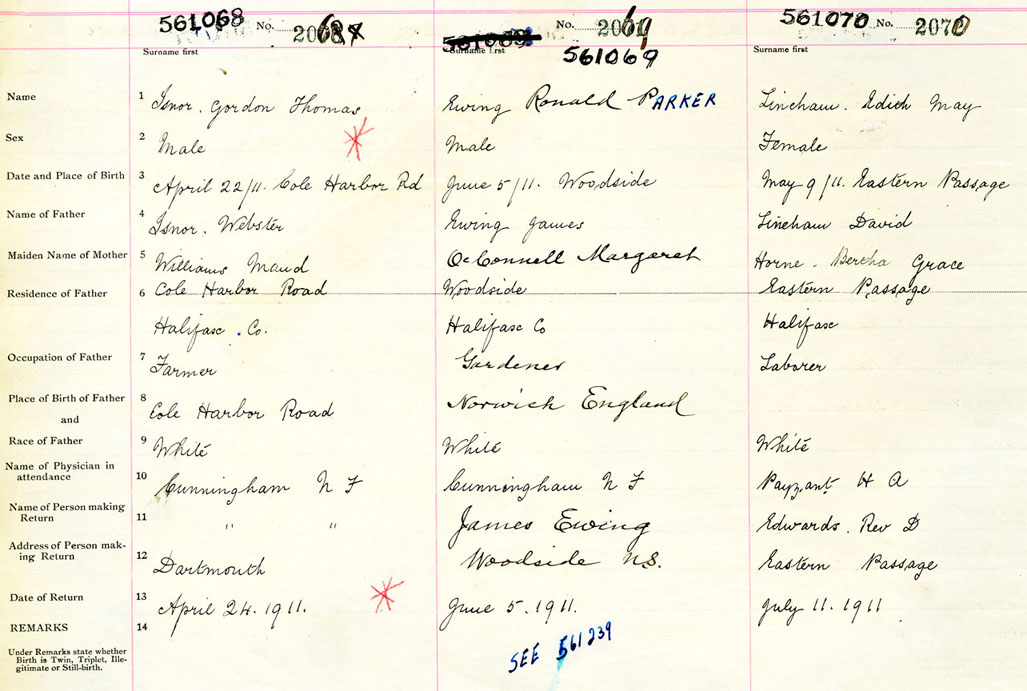 561068 No. 2068 561069 No. 2069 561070 No. 2070
Surname first Surname first 561069 Surname first
Name 1 Isnor. Gordon Thomas Ewing Ronald PARKER Lincham. Edith May
Sex 2 Male Male Female
Date and Place of Birth 3 April 22/11. Cole Harbor Rd June 5/11. Woodside May 9/11. Eastern Passage
Name of Father 4 Isnor. Webster Ewing James Lincham David
Maiden Name of Mother 5 Williams Maud O'Connell Margaret Horne. Bertha Grace
Residence of Father 6 Cole Harbor Road Woodside Eastern Passage
Halifax. Co. Halifax Co Halifax
Occupation of Father 7 Farmer Gardener Laborer
Place of Birth of Father 8 Cole Harbor Road Norwich England
and
Race of Father 9 White White White
Name of Physician in
attendance 10 Cunningham N F Cunningham N F Payzant H A
Name of Person making
Return 11 " " James Ewing Edwards. Rev D
Address of Person mak-
ing Return 12 Dartmouth Woodside N.S. Eastern Passage
Date of Return 13 April 24. 1911. June 5. 1911. July 11. 1911
REMARKS 14
Under Remarks state whether
Birth is Twin, Triplet, Ille-
gitimate or Still-birth.
SEE 561239